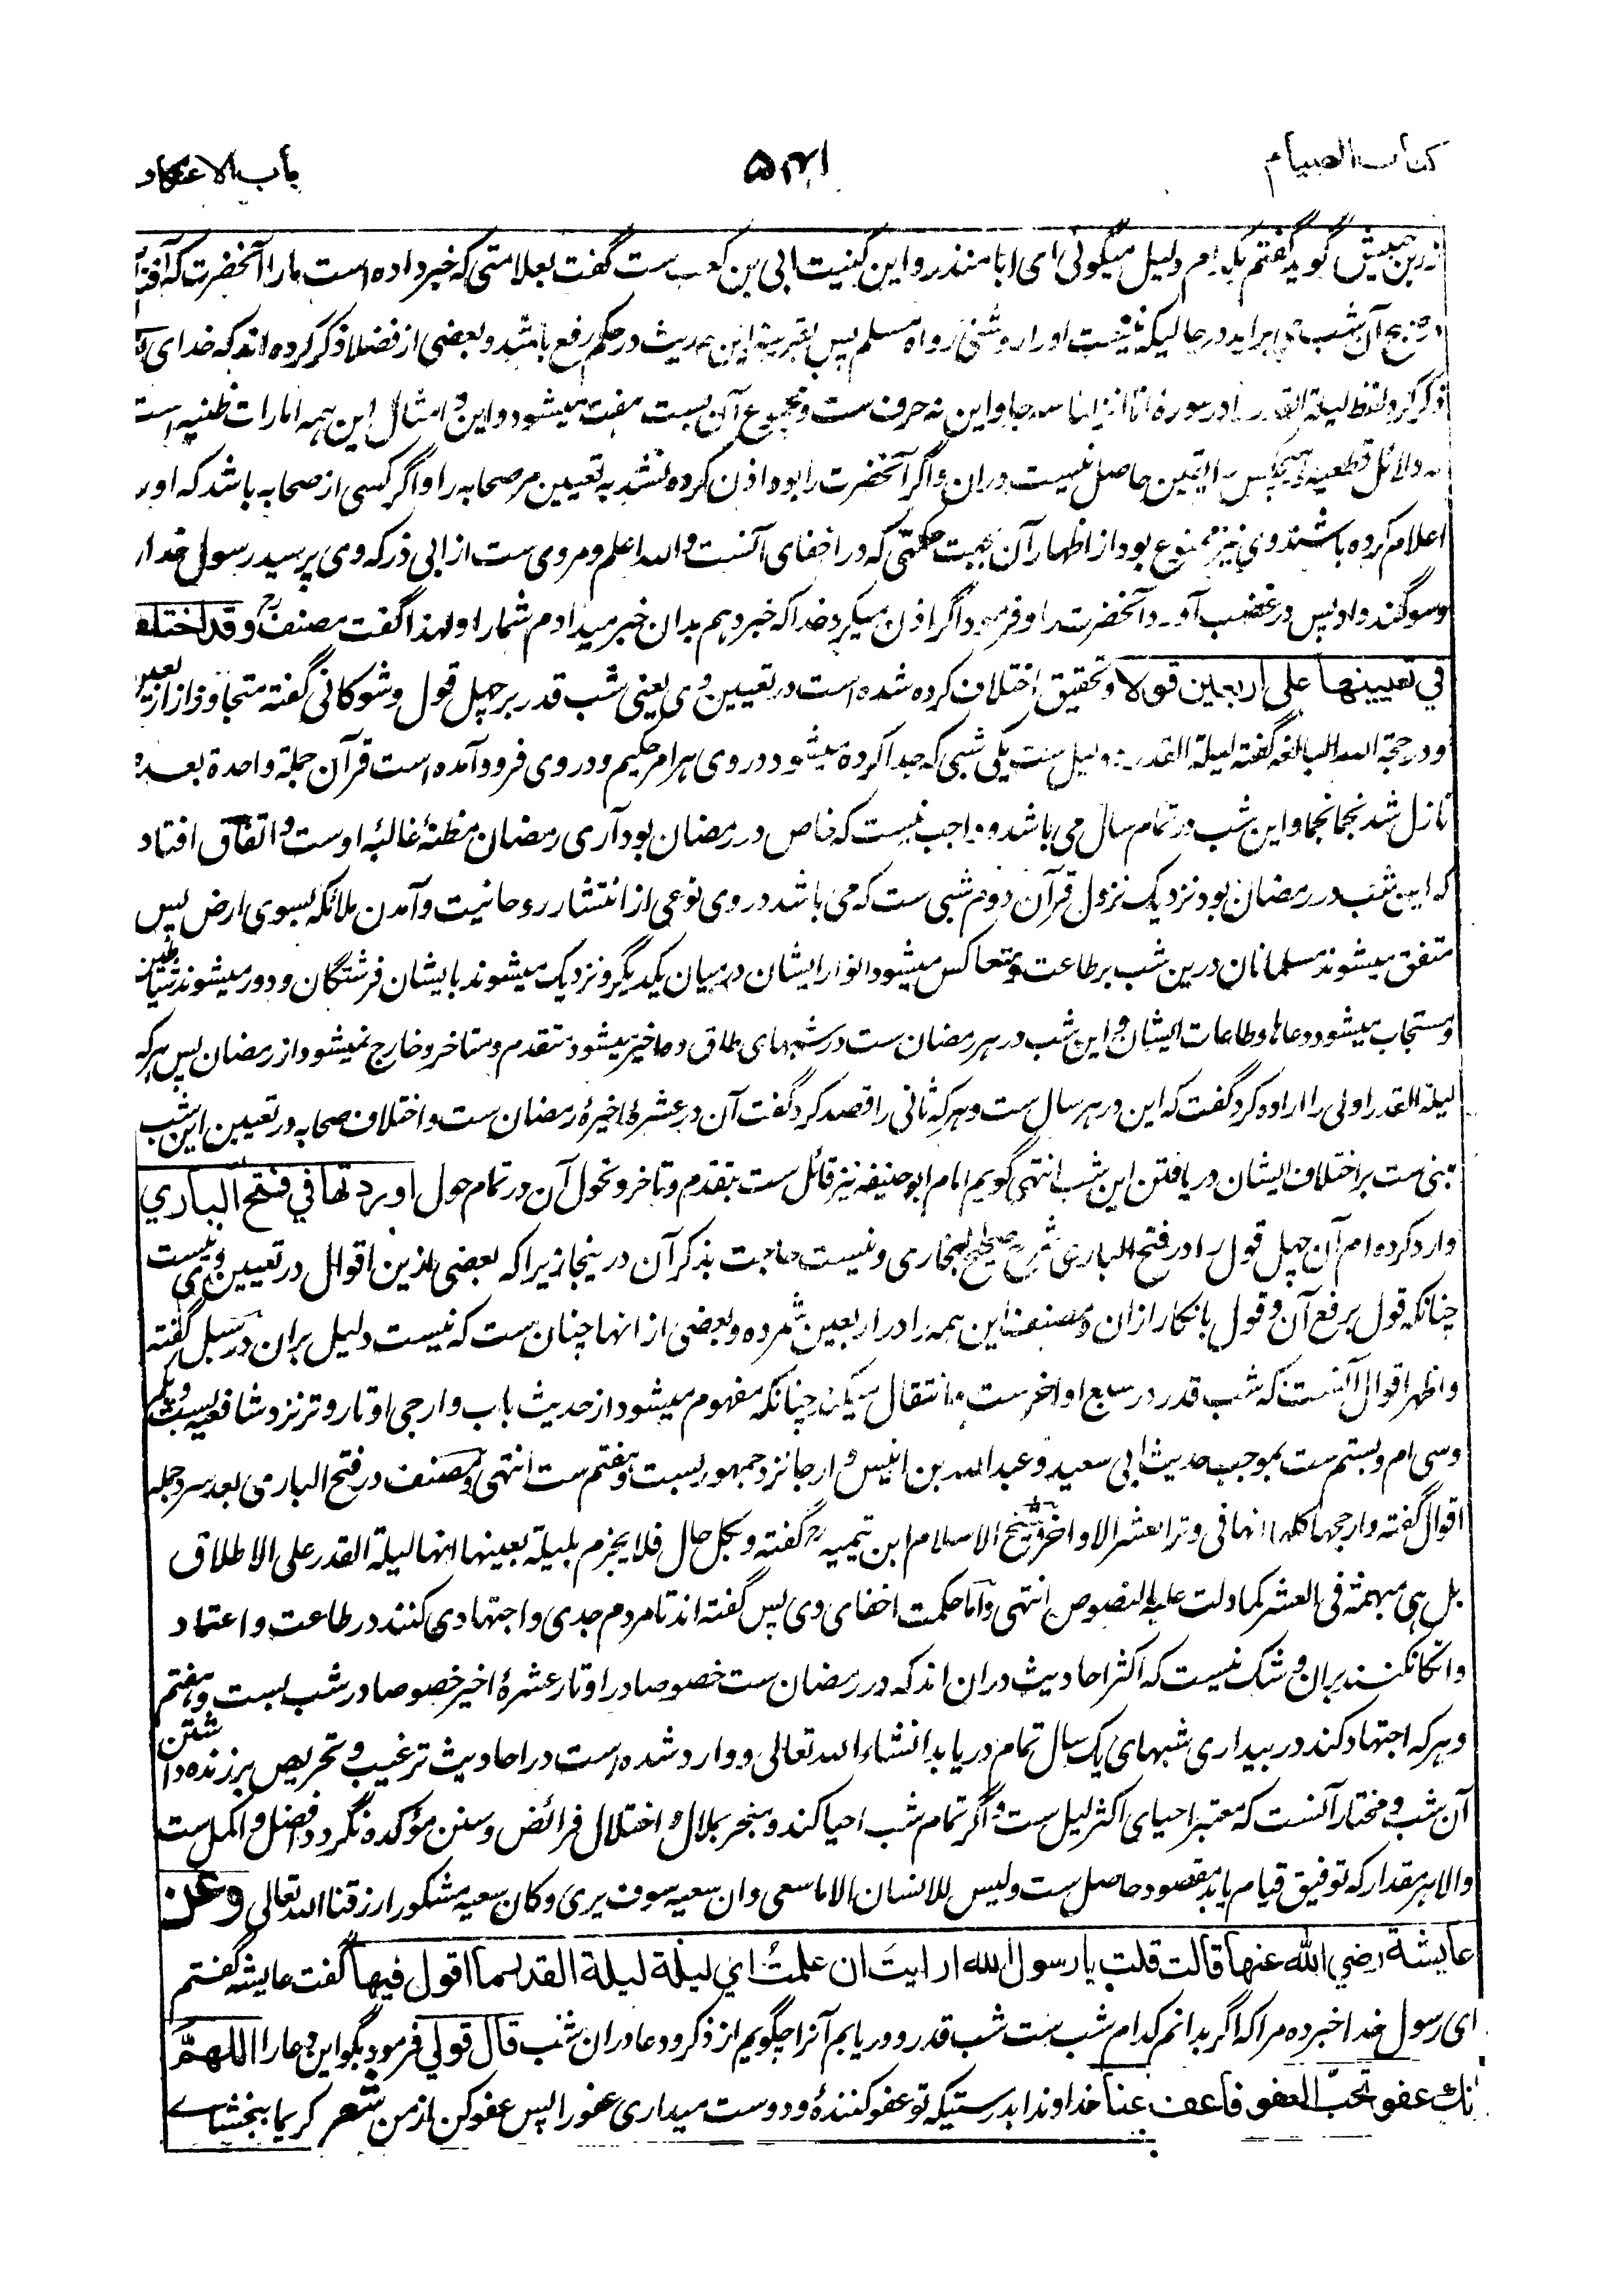 كتاب الصيام
باب الاعتكاف
زر بن حبیش گوید گفتم بکدام دلیل میگوئی ای ابا منذر و این کنیت ابی بن کعب ست گفت بعلامتی که خبر داده است مارا آنحضرت که
آن شب می براید در حالیکه نیست او را روشنی رواه مسلم پس بقرینه این حدیث در حکم رفع باشد و بعضی از فضلا ذکر کرده اند که خدای
ذکر کرد لفظ لیلة القدر را در سورهٔ انا انزلناه سه جا و این نه حرف ست و مجموع آن بست هفت میشود و این و امثال این همه امارات ظنیه است
نه دلائل قطعیه و هیچکس را یقین حاصل نیست دران و اگر آنحضرت را بود اذن کرده نشد به تعیین مر صحابه را و اگر کسی از صحابه باشد که او را
اعلام کرده باشند وی نیز ممنوع بود از اظهار آن بجهت حکمتی که در اخفای آنست و الله اعلم و مروی ست از ابی ذر که وی پرسید رسول خدا را
و سوگند داد پس در غضب آورد آنحضرت را و فرمود اگر اذن میکرد خدا که خبر دهم بدان خبر میدادم شما را و لهذا گفت مصنف رح وقد اختلف
في تعيينها على اربعين قولا و تحقیق اختلاف کرده شده است در تعیین وی یعنی شب قدر بر چهل قول و شوکانی گفته متجاوز از اربعین
و در حجة الله البالغه گفته لیلة القدر دو لیل ست یکی شبی که جدا کرده میشود در وی هر امر حکیم و در وی فرود آمده است قرآن جملة واحدة بعده
نازل شد نجما نجما و این شب در تمام سال می باشد و واجب نیست که خاص در رمضان بود آری رمضان مظنهٔ غالبهٔ اوست و اتفاق افتاد
که این شب در رمضان بود نزدیک نزول قرآن دوم شبی ست که می باشد در وی نوعی از انتشار روحانیت و آمدن ملائکه بسوی ارض پس
متفق میشوند مسلمانان درین شب بر طاعت و متعاکس میشود انوار ایشان در میان یکدیگر و نزدیک میشوند بایشان فرشتگان و دور میشوند شیاطین
و مستجاب میشود دعاها و طاعات ایشان و این شب در هر رمضان ست در شبهای طاق دهه اخیر میشود متقدم و متاخر و خارج نمیشود از رمضان پس هر که
لیلة القدر اولی را اراده کرد گفت که این در هر سال ست و هر که ثانی را قصد کرد گفت آن در عشرهٔ اخیرهٔ رمضان ست و اختلاف صحابه در تعیین این شب
مبنی ست بر اختلاف ایشان در یافتن این شب انتهی گویم امام ابو حنیفه نیز قائل ست بتقدم و تاخر و تحول آن در تمام حول اوردتها في فتح الباري
وارد کرده ام آن چهل قول را در فتح الباری شرح صحیح البخاری و نیست حاجت بذکر آن در ینجا زیرا که بعضی ازین اقوال در تعیین وی نیست
چنانکه قول برفع آن و قول بانکار ازان و مصنف این همه را در اربعین شمرده و بعضی از انها چنان ست که نیست دلیل بران در سبل گفته
و اظهر اقوال آنست که شب قدر در سبع اواخر ست و انتقال میکند چنانکه مفهوم میشود از حدیث باب و ارجی اوتار وتر نزد شافعیه بست و یکم
و سی ام و بستم ست بموجب حدیث ابی سعید و عبد الله بن انیس و ارجا نزد جمهور بست و هفتم ست انتهی و مصنف در فتح الباری بعد سرد جمله
اقوال گفته و ارجحها کلها انها فی وتر العشر الاواخر و شیخ الاسلام ابن تیمیه رح گفته و بکل حال فلا یجزم بلیلة بعینها انها لیلة القدر علی الاطلاق
بل هی مبهمة فی العشر کما دلت علیه النصوص انتهی و اما حکمت اخفای وی پس گفته اند تا مردم جدی و اجتهادی کنند در طاعت و اعتماد
و اتکا نکنند بران و شک نیست که اکثر احادیث دران اند که در رمضان ست خصوصا در اوتار عشرهٔ اخیر خصوصا در شب بست و هفتم
و هر که اجتهاد کند در بیداری شبهای یک سال تمام در یابد انشاء الله تعالی و وارد شده است در احادیث ترغیب و تحریص بر زنده داشتن
آن شب و مختار آنست که معتبر احیای اکثر لیل ست و اگر تمام شب احیا کند و منجر بملال و اختلال فرائض و سنن مؤکده نگردد افضل و اکمل ست
و الا هر مقدار که توفیق قیام یابد مقصود حاصل ست و لیس للانسان الا ما سعی و ان سعیه سوف یری و کان سعیه مشکورا رزقنا الله تعالی وعن
عايشة رضي الله عنها قالت قلت يا رسول الله ارايت ان علمت اي ليلة ليلة القدر ما اقول فيها گفت عایشه گفتم
ای رسول خدا خبر ده مرا که اگر بدانم کدام شب ست شب قدر و در یابم آنرا چگویم از ذکر و دعا دران شب قال قولي فرمود بگو این دعا را اللهم
انك عفو تحب العفو فاعف عنا خداوندا بدرستیکه تو عفو کنندهٔ و دوست میداری عفو را پس عفو کن از من شعر کریما ببخشای